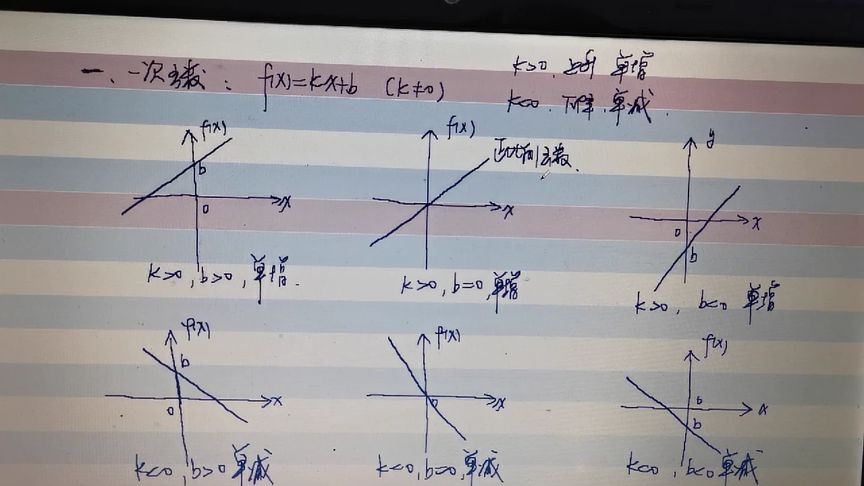 一、一次函数：f(x)=kx+b (k≠0)
k>0, 上升 单增
k<0, 下降, 单减.
f(x) b 0 x
k>0, b>0, 单增.
f(x) 正比例函数. x
k>0, b=0, 单增
y x 0 b
k>0, b<0 单增
f(x) b 0 x
k<0, b>0 单减
f(x) 0 x
k<0, b=0, 单减
f(x) b x b
k<0, b<0 单减